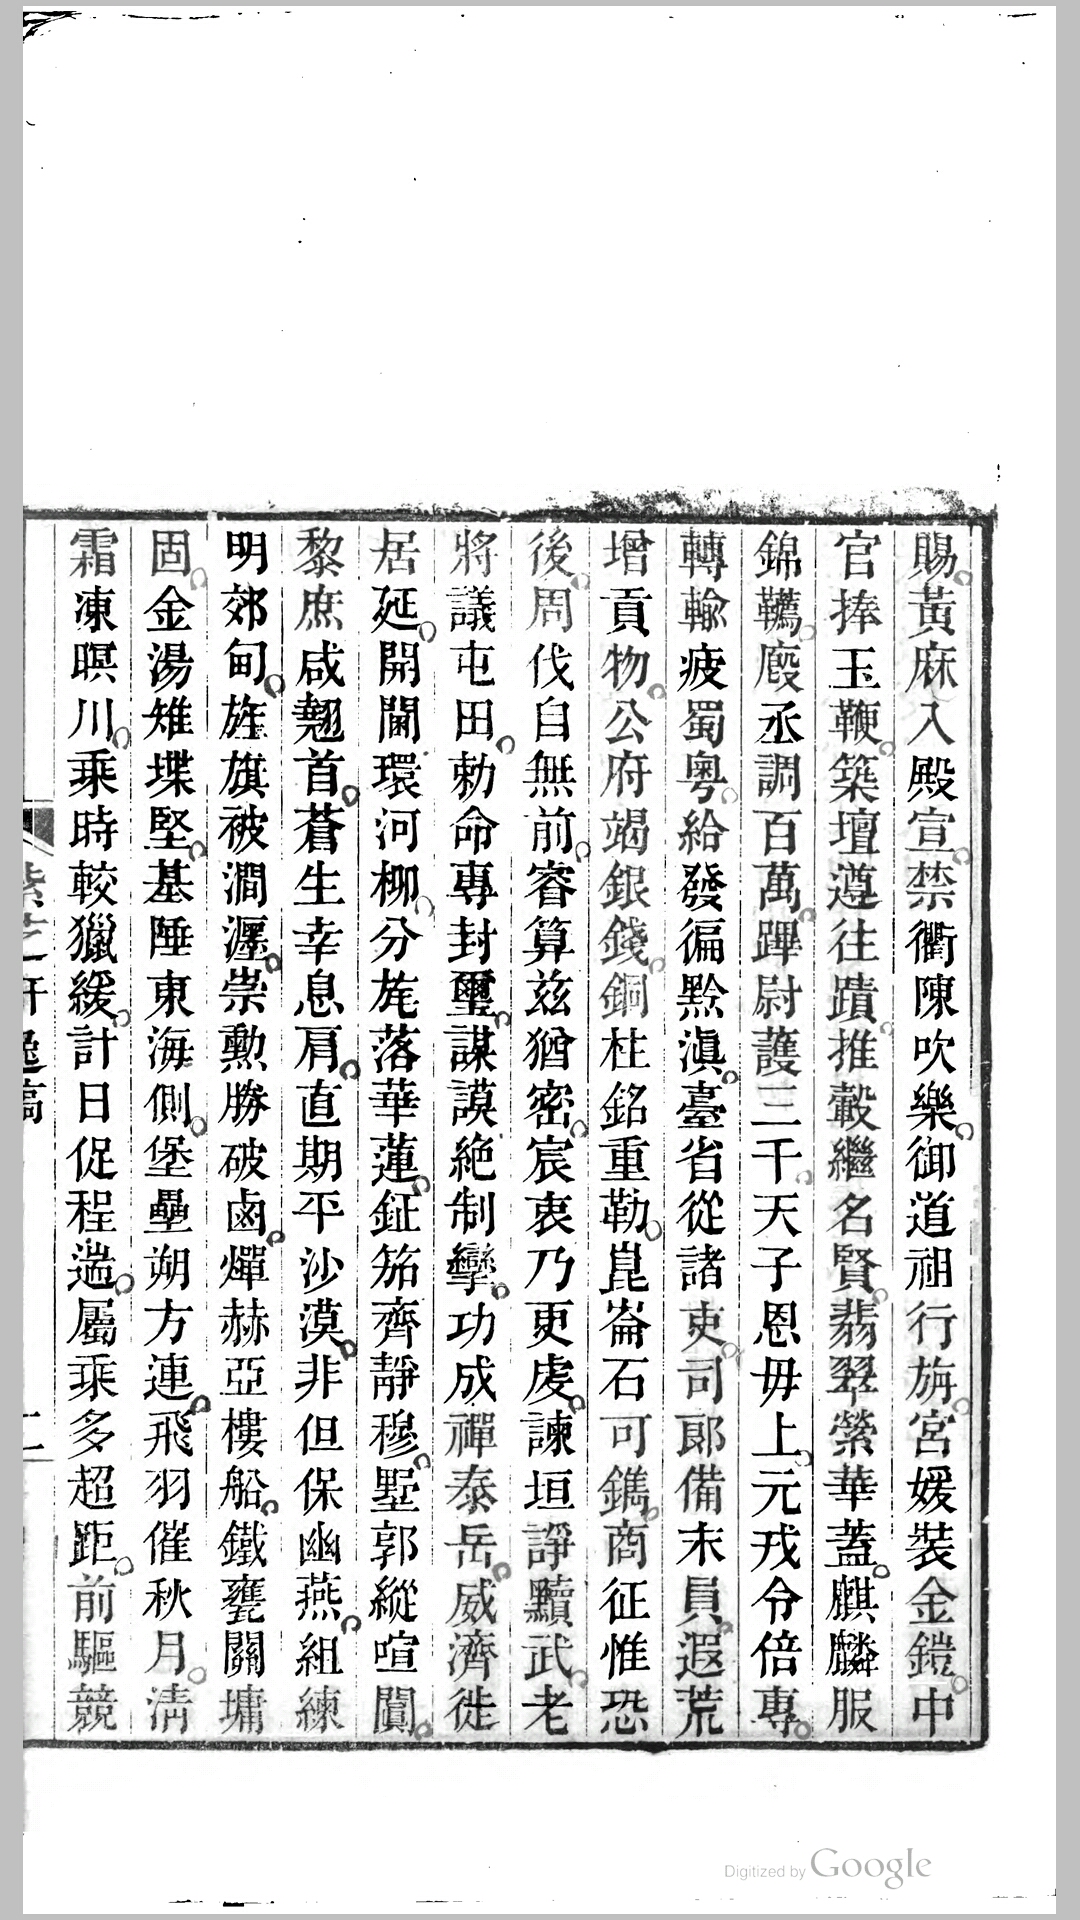 賜黃麻入殿宣禁衢陳吹樂御道祖行旃宮媛裝金鎧中
官捧玉鞭築壇遵往蹟推轂繼名賢翡翠縈華蓋麒麟服
錦韉廏丞調百萬蹕尉護三千天子恩毋上元戎令倍專
轉輸疲蜀粵給發徧黔滇臺省從諸吏司郎備末員遐荒
增貢物公府竭銀錢銅柱銘重勒崑崙石可鐫商征惟恐
後周伐自無前睿算茲猶密宸衷乃更虔諫垣諍黷武老
將議屯田勅命專封璽謀謨絶制攣功成禪泰岳威濟徙
居延開閫環河柳分旄落華蓮鉦笳齊靜穆墅郭縱喧闐
黎庶咸翹首蒼生幸息肩直期平沙漠非但保幽燕組練
明郊甸旌旗被澗瀍崇勳勝破鹵燀赫亞樓船鐵甕關墉
固金湯雉堞堅基陲東海側堡壘朔方連飛羽催秋月淸
霜凍暝川乘時較獵緩計日促程遄屬乘多超距前驅競
紫芝軒逸稿
二
Digitized by Google